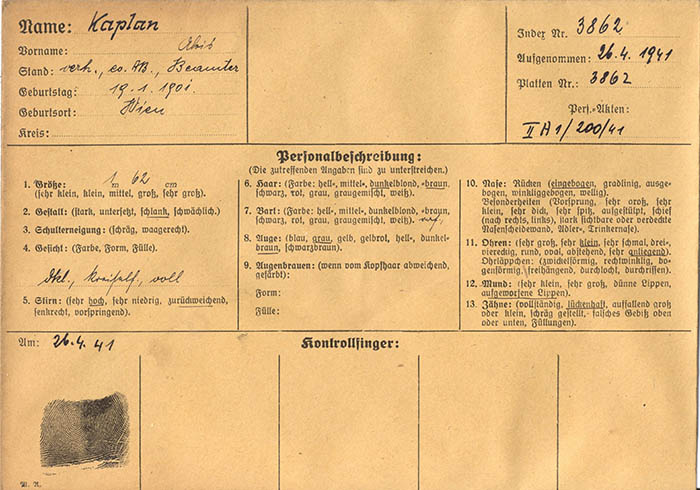 Name: Kaplan
Vorname: Alois
Stand: verh., ev. AB., Beamter
Geburtstag: 19.1.1901.
Geburtsort: Wien
Kreis:
Index Nr. 3862
Aufgenommen: 26.4.1941
Platten Nr.: 3862
Pers.-Akten:
II A1/200/41
Personalbeschreibung:
(Die zutreffenden Angaben sind zu unterstreichen.)
1. Größe: 1 m 62 cm
(sehr klein, klein, mittel, groß, sehr groß).
2. Gestalt: (stark, untersetzt, schlank, schwächlich).
3. Schulterneigung: (schräg, waagerecht).
4. Gesicht: (Farbe, Form, Fülle).
voll
5. Stirn: (sehr hoch, sehr niedrig, zurückweichend,
senkrecht, vorspringend).
6. Haar: (Farbe: hell-, mittel-, dunkelblond, -braun,
schwarz, rot, grau, graugemischt, weiß).
7. Bart: (Farbe: hell-, mittel-, dunkelblond, -braun,
schwarz, rot, grau, graugemischt, weiß).
8. Auge: (blau, grau, gelb, gelbrot, hell-, dunkel-
braun, schwarzbraun).
9. Augenbrauen: (wenn vom Kopfhaar abweichend,
gefärbt):
Form:
Fülle:
10. Nase: Rücken (eingebogen, gradlinig, ausge-
bogen, winkliggebogen, wellig).
Besonderheiten (Vorsprung, sehr groß, sehr
klein, sehr dick, sehr spitz, aufgestülpt, schief
(nach rechts, links), stark sichtbare oder verdeckte
Nasenscheidewand, Adler-, Trinkernase).
11. Ohren: (sehr groß, sehr klein, sehr schmal, drei-,
viereckig, rund, oval, abstehend, sehr anliegend).
Ohrläppchen: (zwickelförmig, rechtwinklig, bo-
genförmig, freihängend, durchlocht, durchrissen).
12. Mund: (sehr klein, sehr groß, dünne Lippen,
aufgeworfene Lippen).
13. Zähne: (vollständig, lückenhaft, auffallend groß
oder klein, schräg gestellt, falsches Gebiß oben
oder unten, Füllungen).
Am: 26.4.41
Kontrollfinger: